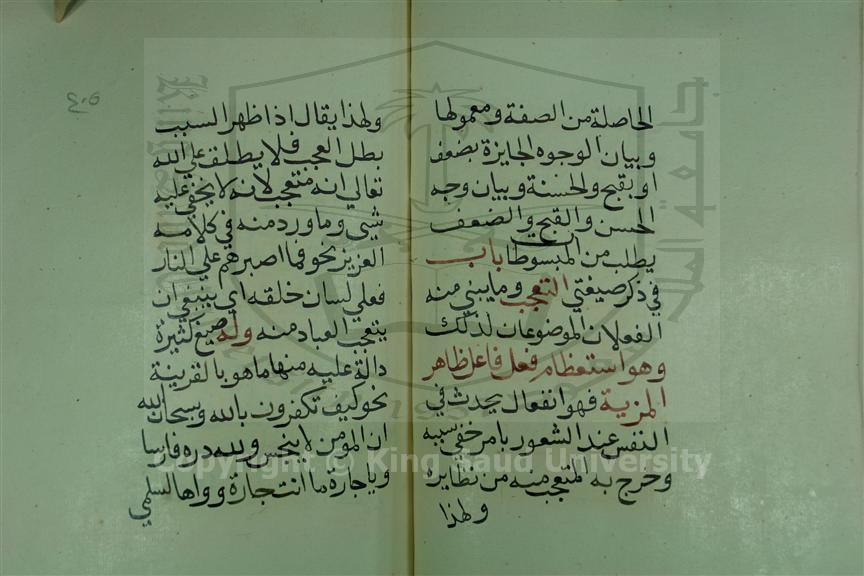 الحاصلة من الصفة ومعمولها
وبيان الوجوه الجايزة بضعف
او بقبح والحسنة وبيان وجه
الحسن والقبح والضعف
يطلب من المبسوطات باب
في ذكر صيغتي التعجب وما يبنى منه
الفعلان الموضوعان لذلك
وهو استعظام فعل فاعل ظاهر
المزية فهو انفعال يحدث في
النفس عند الشعور بامر خفي سببه
وخرج به المتعجب منه من نظايره
ولهذا
٤٠٥
ولهذا يقال اذا ظهر السبب
بطل العجب فلا يطلق على الله
تعالى انه متعجب لانه لا يخفى عليه
شيئ وما ورد منه في كلامه
العزيز نحو فما اصبرهم على النار
فعلى لسان خلقه اي ينبغي ان
يتعجب العباد منه وله صيغ كثيرة
دالة عليه منها ما هو بالقرينة
نحو كيف تكفرون بالله وسبحان الله
ان المومن لا ينجس ولله دره فارسا
وياجارة ما انت جارة وواها لسلمي
Copyright © King Saud University
جامعة الملك
1957